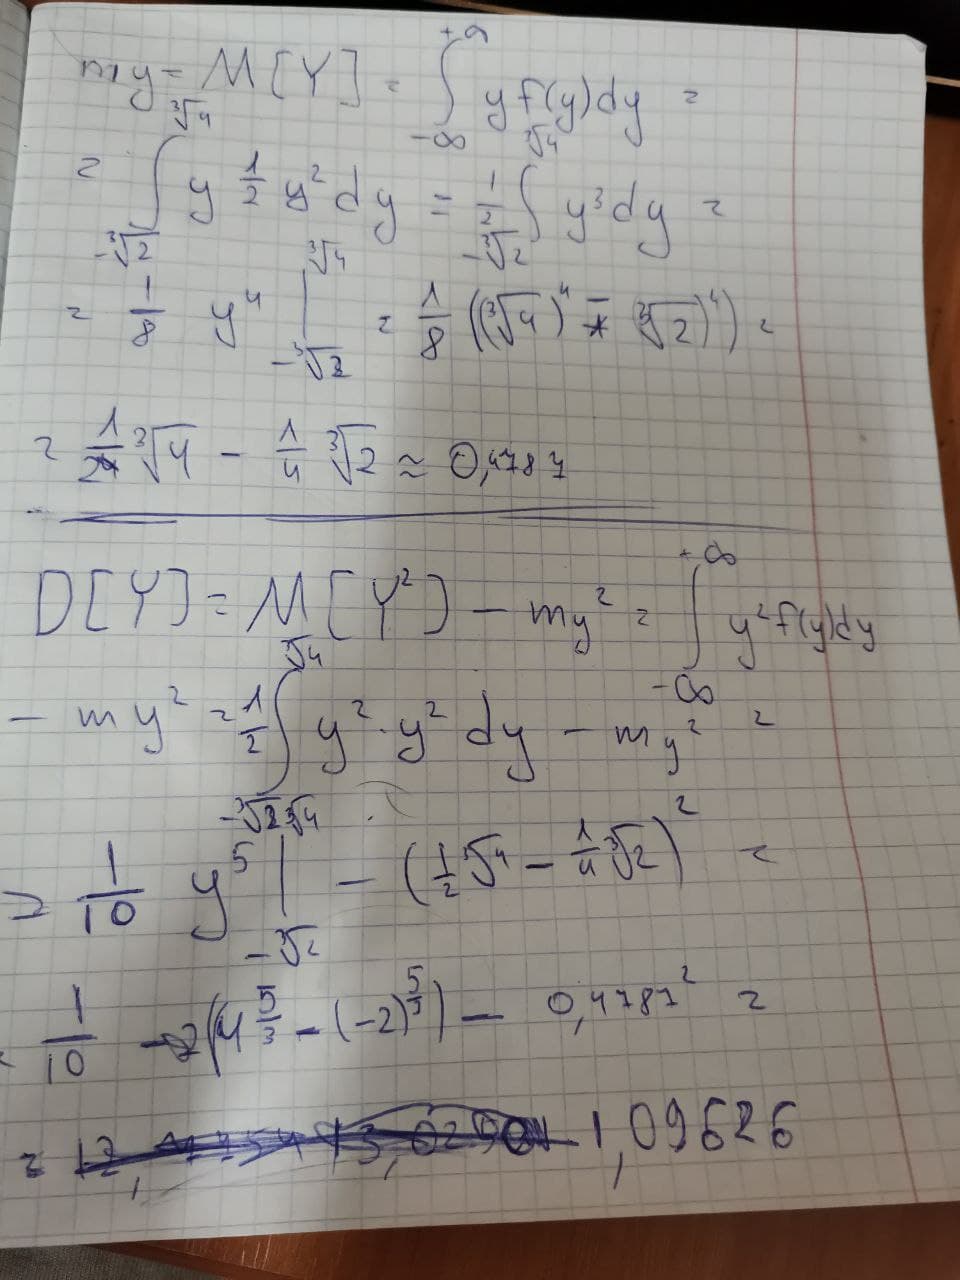 my = M[Y] = ∫_{-∞}^{+∞} y f(y)dy =
= ∫_{-∛2}^{∛4} y 1/2 y² dy = 1/2 ∫_{-∛2}^{∛4} y³dy =
= 1/8 y⁴ |_{-∛2}^{∛4} = 1/8 ((∛4)⁴ - (∛2)⁴) =
= 1/2 ∛4 - 1/4 ∛2 ≈ 0,4787
D[Y] = M[Y²] - my² = ∫_{-∞}^{+∞} y² f(y)dy
- my² = 1/2 ∫_{-∛2}^{∛4} y² · y² dy - my² =
= 1/10 y⁵ |_{-∛2}^{∛4} - (1/2 ∛4 - 1/4 ∛2)² =
= 1/10 (4^{5/3} - (-2)^{5/3}) - 0,4787² =
= 1,09626